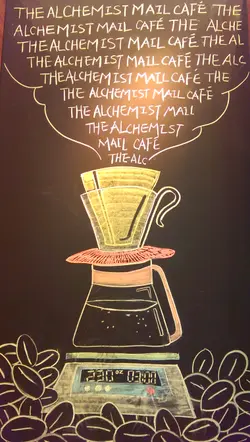 THE ALCHEMIST MAIL CAFÉ THE
ALCHEMIST MAIL CAFÉ THE ALCHE
THE ALCHEMIST MAIL CAFÉ THE AL
THE ALCHEMIST MAIL CAFÉ THE ALC
THE ALCHEMIST MAIL CAFÉ THE
THE ALCHEMIST MAIL CAFÉ
THE ALCHEMIST MAIL
THE ALCHEMIST
MAIL CAFÉ
THE ALC